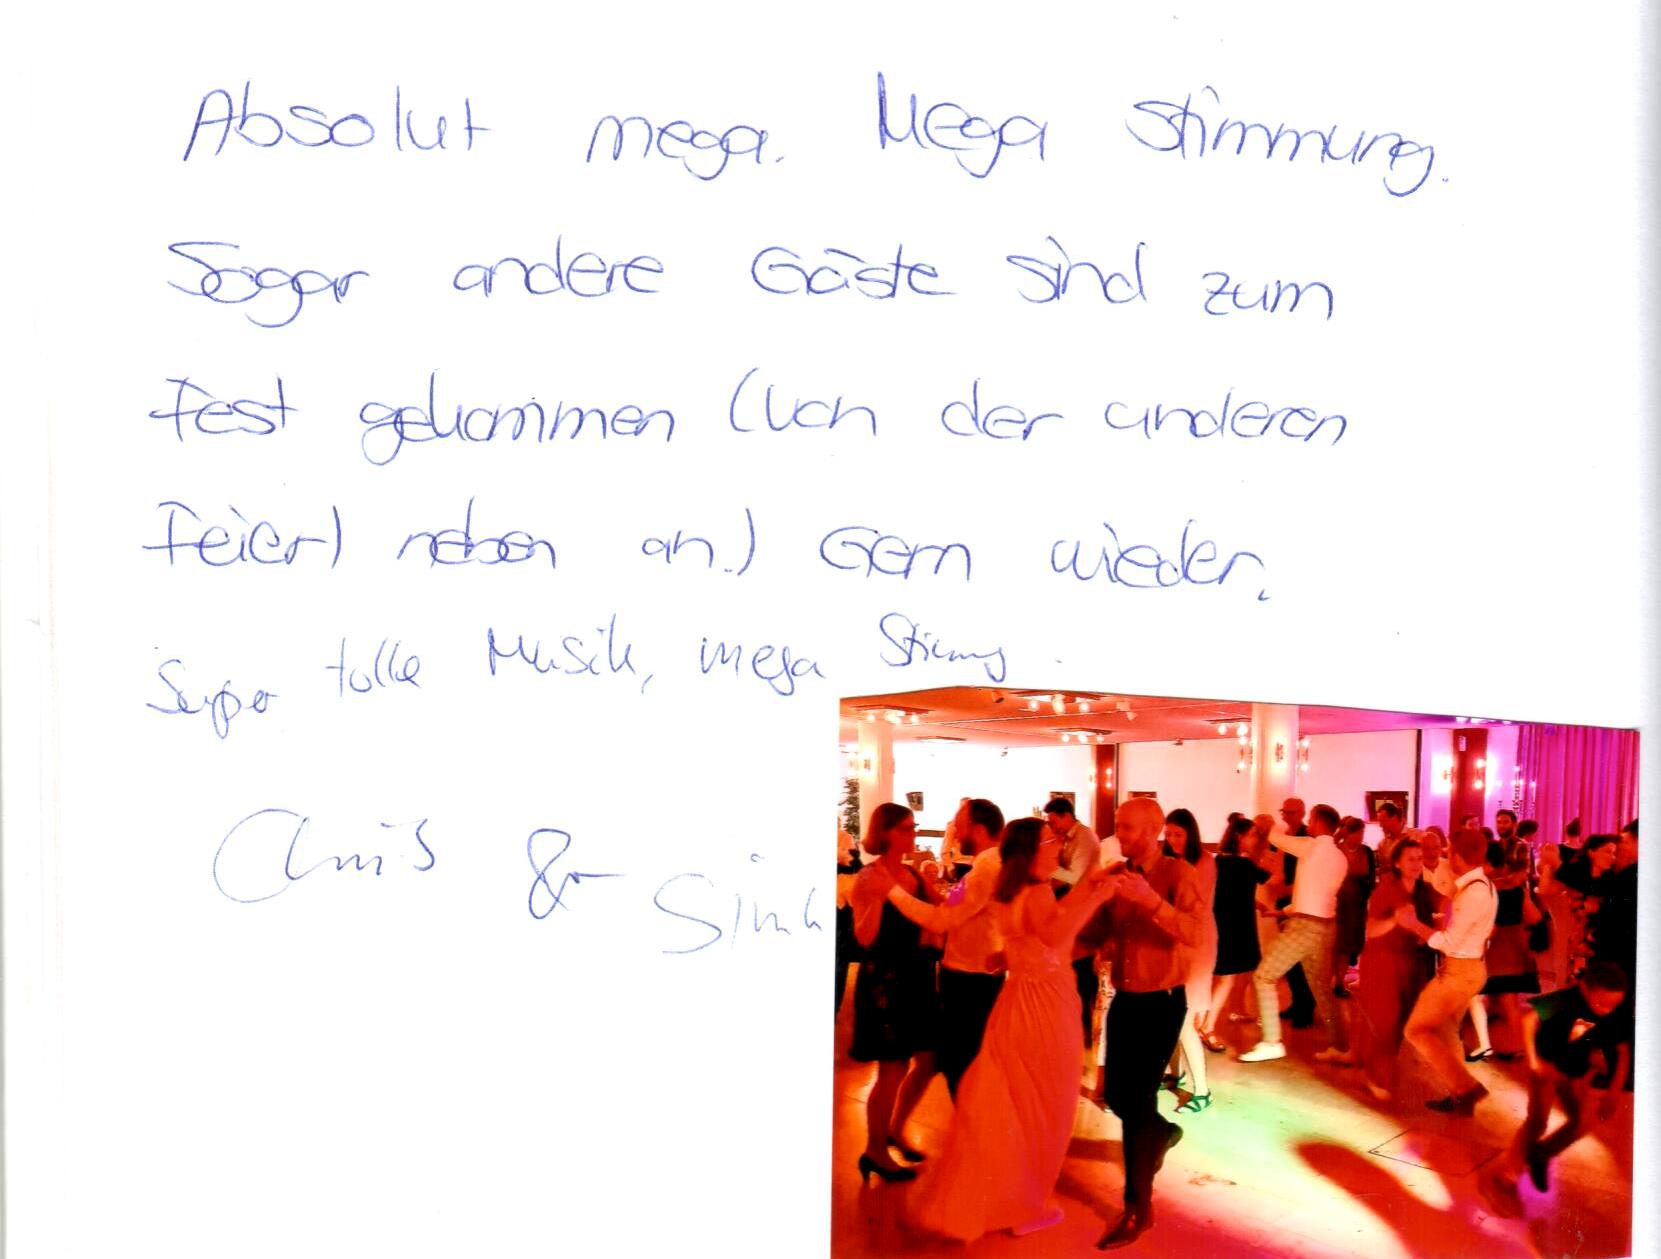 Absolut mega. Mega Stimmung.
Sogar andere Gäste sind zum
Fest gekommen (von der anderen
Feier) neben an.) Gern wieder.
Super tolle Musik, mega Stimmung.
Chris &